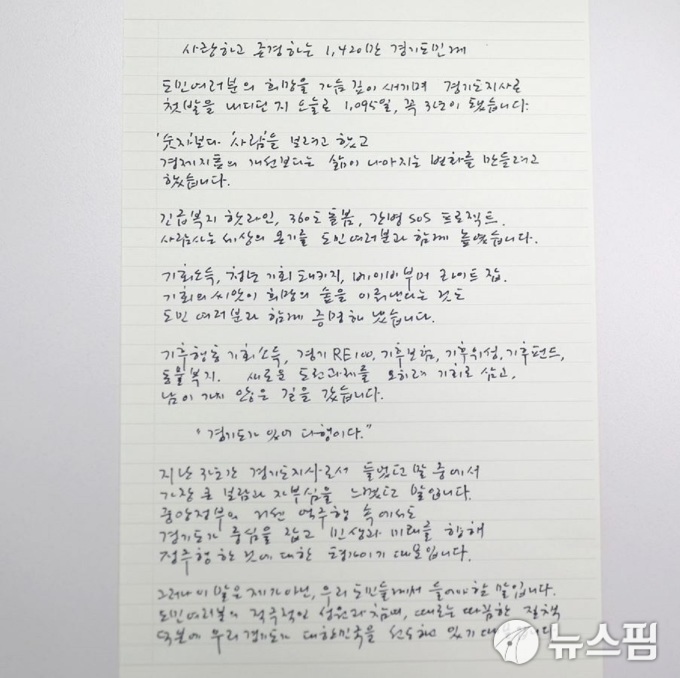 사랑하고 존경하는 1,420만 경기도민께
도민 여러분의 희망을 가슴 깊이 새기며 경기도지사로
첫발을 내디딘 지 오늘로 1,095일, 꼭 3년이 됐습니다.
'숫자'보다 '사람'을 보려고 했고
경제지표의 개선보다는 삶이 나아지는 변화를 만들려고
했습니다.
긴급복지 핫라인, 360도 돌봄, 간병 SOS 프로젝트.
사람사는 세상의 온기를 도민 여러분과 함께 높였습니다.
기회소득, 청년 기회 패키지, 베이비부머 라이트 잡.
기회의 씨앗이 희망의 숲을 이뤄낸다는 것도
도민 여러분과 함께 증명해 냈습니다.
기후행동 기회소득, 경기 RE100, 기후보험, 기후위성, 기후펀드,
동물복지. 새로운 도전과제를 오히려 기회로 삼고,
남이 가지 않은 길을 갔습니다.
"경기도가 있어 다행이다."
지난 3년간 경기도지사로서 들었던 말 중에서
가장 큰 보람과 자부심을 느꼈던 말입니다.
중앙정부의 거센 역주행 속에서도
경기도가 중심을 잡고 민생과 미래를 향해
정주행 한 것에 대한 평가이기 때문입니다.
그러나 이 말은 제가 아닌, 우리 도민들께서 들어야 할 말입니다.
도민 여러분의 적극적인 성원과 참여, 때로는 따끔한 질책
덕분에 우리 경기도가 대한민국을 선도하고 있기
뉴스핌